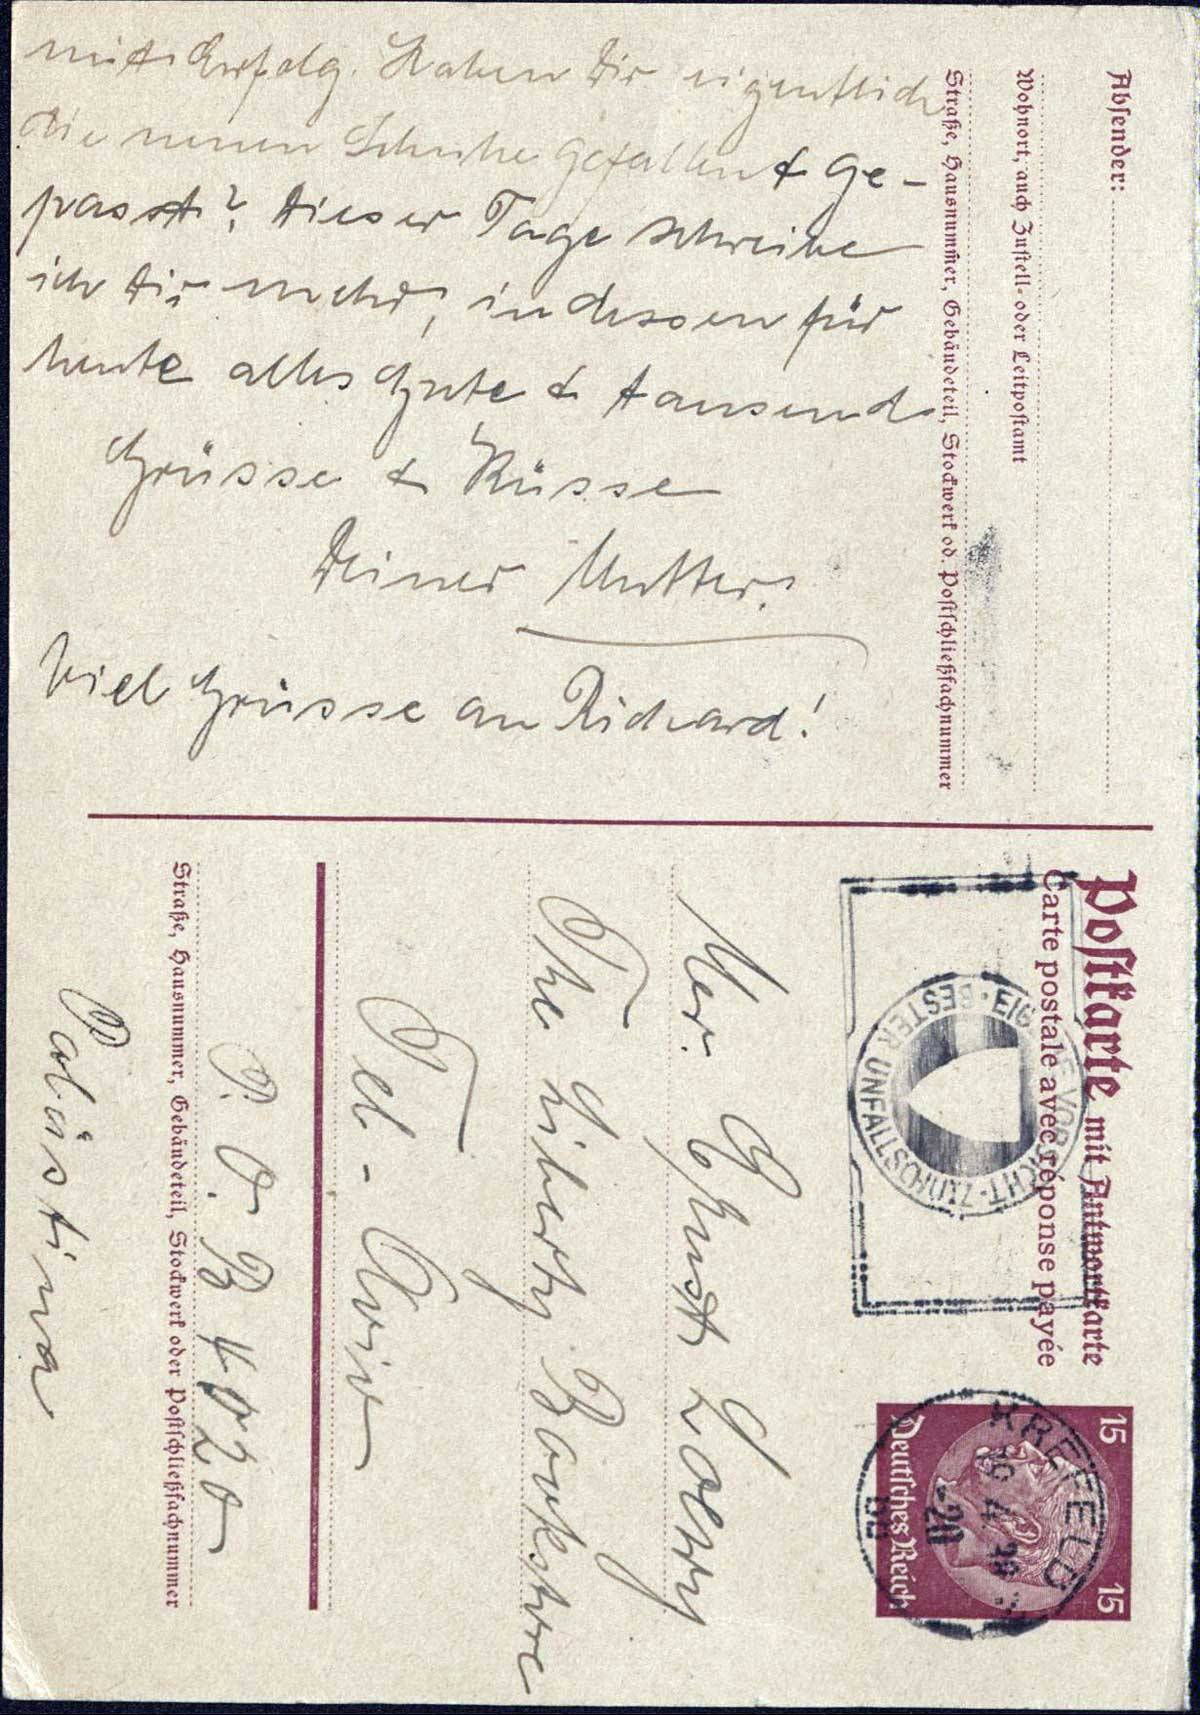 mit Erfolg. Haben Dir eigentlich
die neuen Schuhe gefallen & ge-
passt? Dieser Tage schreibe
ich Dir mehr, indessen für
heute alles Gute & tausend
Grüsse & Küsse
Deiner Mutter.
Viel Grüsse an Richard!
Absender:
Wohnort, auch Zustell- oder Leitpostamt
Straße, Hausnummer, Gebäudeteil, Stockwerk od. Postschließfachnummer
Postkarte mit Antwortkarte
Carte postale avec réponse payée
EIGENE VORSICHT · BESTER UNFALLSCHUTZ ·
15 15
Deutsches Reich
KREFELD
4.38
-20
Mer. Ernst Loewy
The Liberty Bookstore
Tel-Aviv
P. O. B 4020
Straße, Hausnummer, Gebäudeteil, Stockwerk oder Postschließfachnummer
Palästina